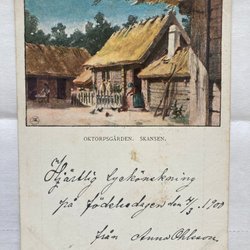 OKTORPSGÅRDEN. SKANSEN.
Hjärtlig lyckönskning
på födelsedagen den 4/3 1901
från Anna Ohlsson